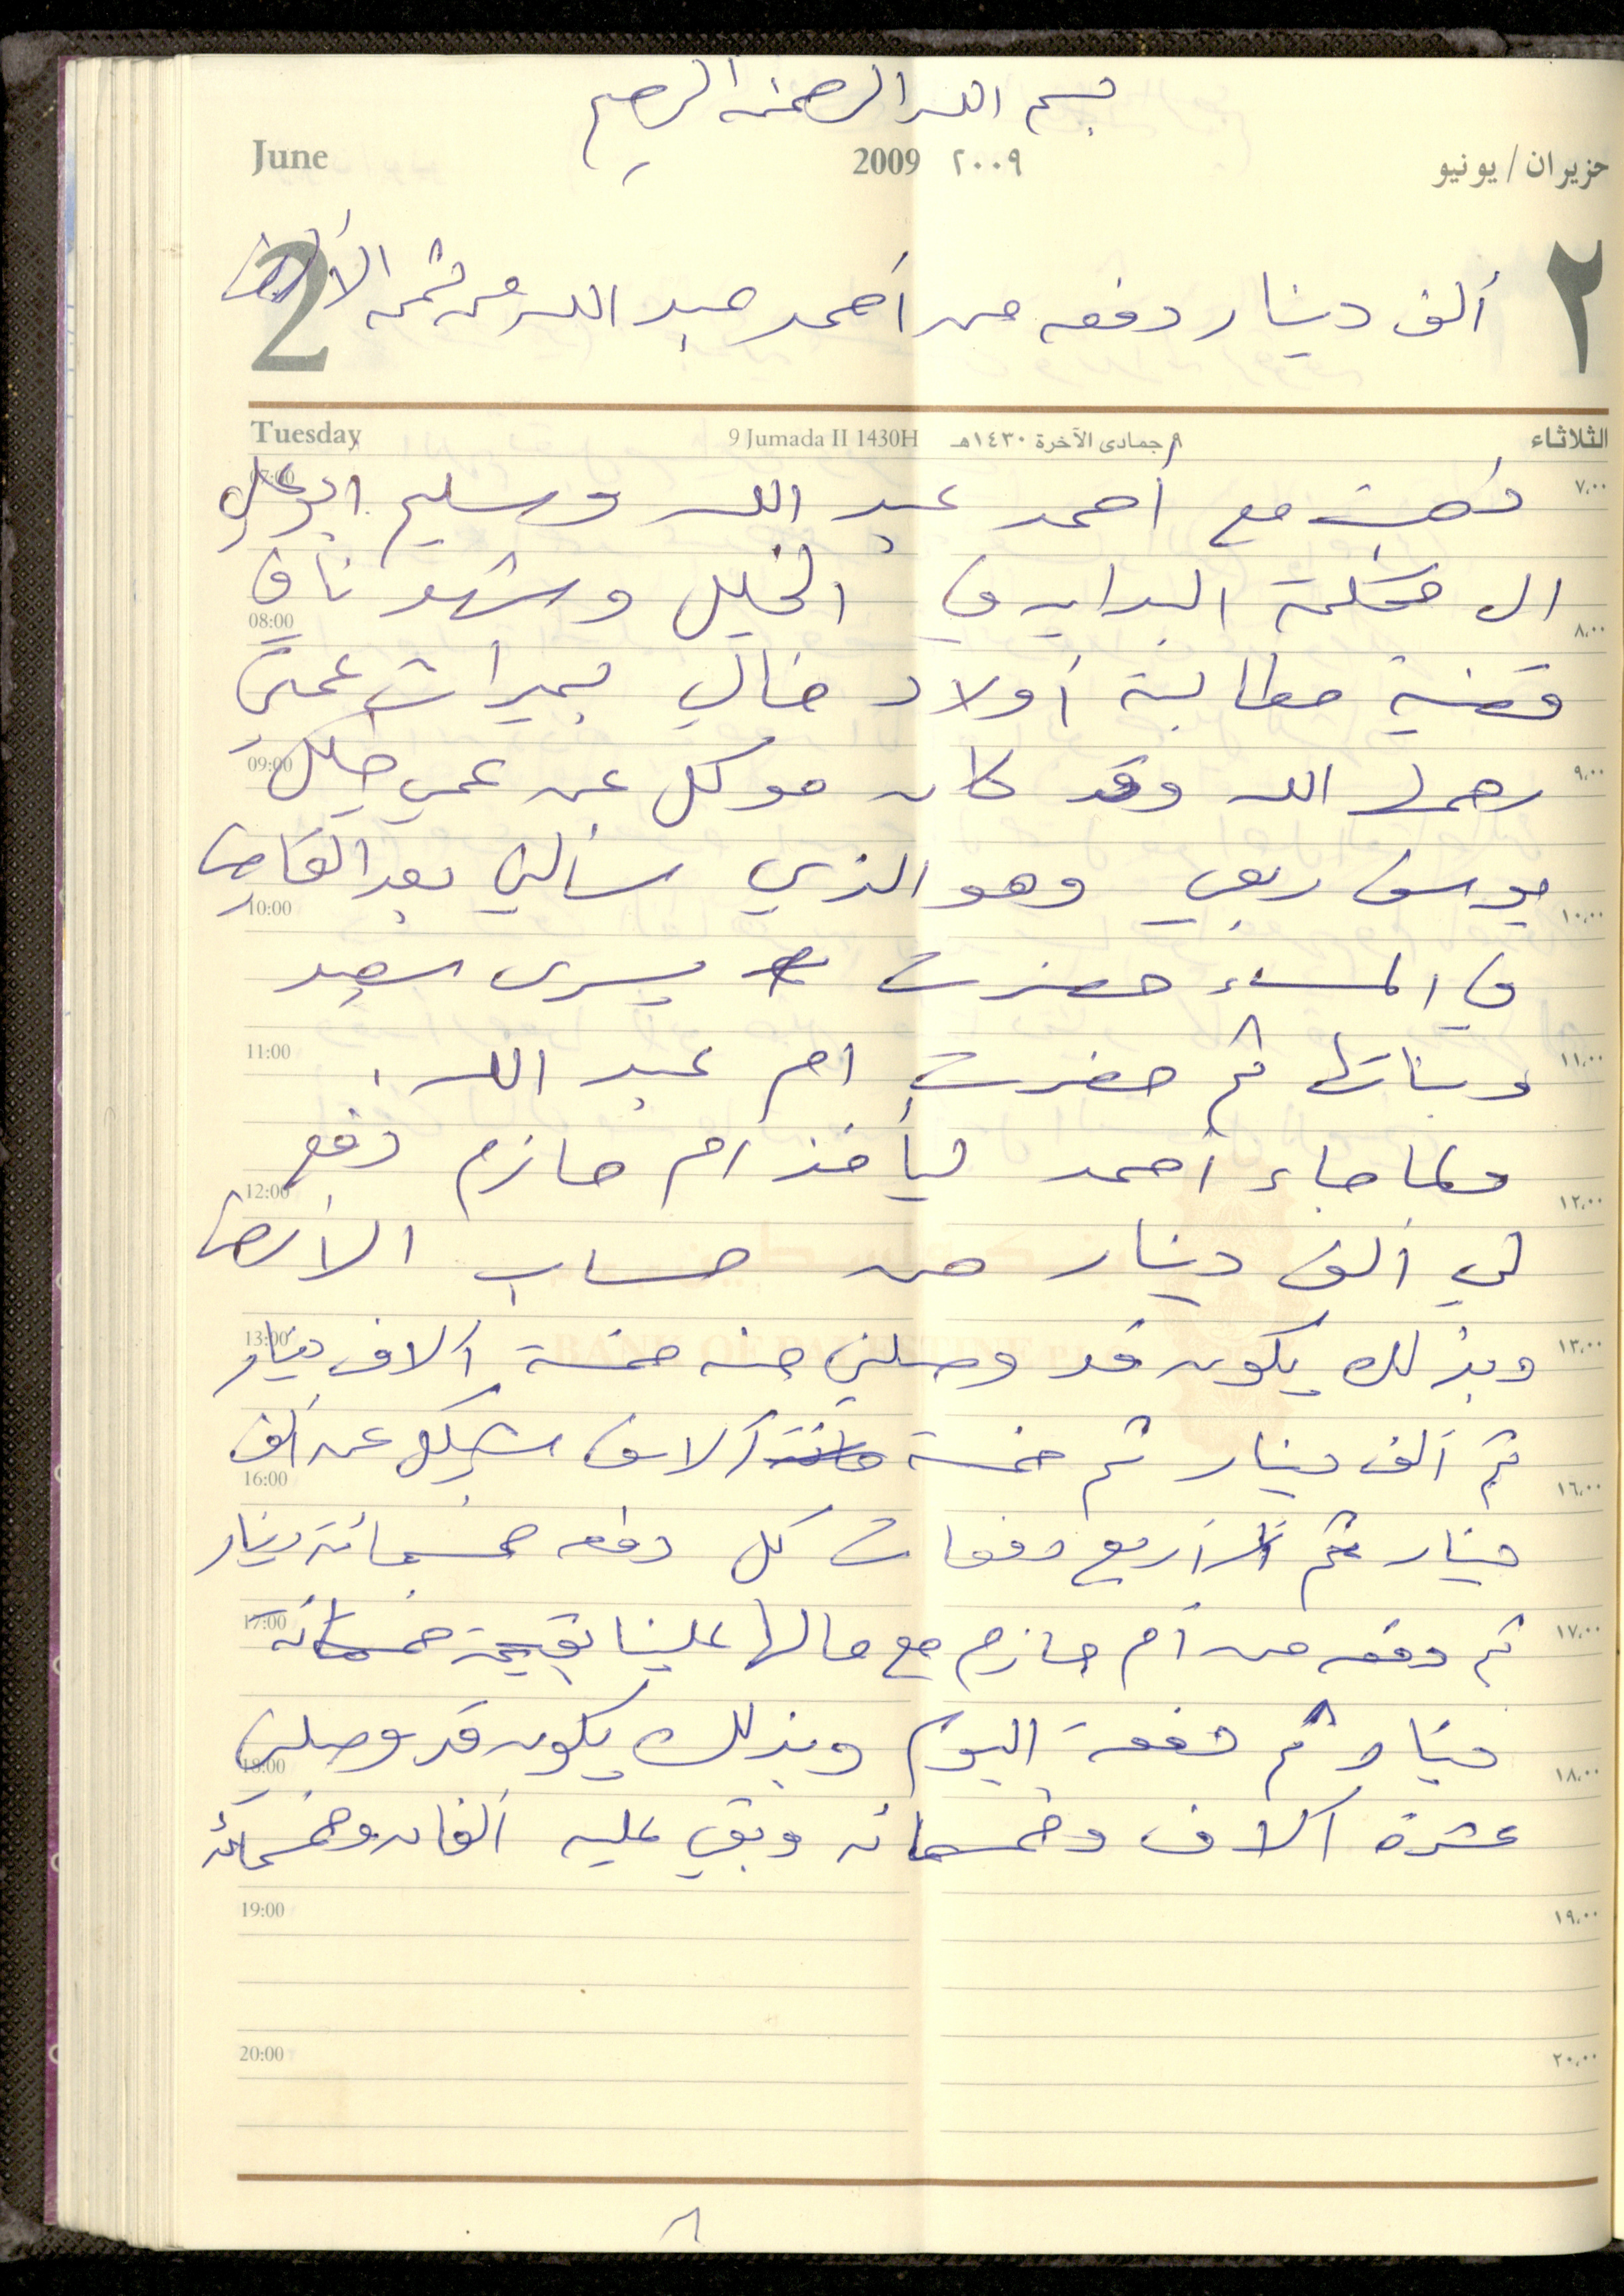 بسم الله الرحمن الرحيم
June 2009 ٢٠٠٩ حزيران/يونيو
2 ٢
ألف دينار دفعه من أحمد عبد الله من ثمن الأرض
Tuesday 9 Jumada II 1430H ٩ جمادى الآخرة ١٤٣٠هـ الثلاثاء
ذهبت مع أحمد عبد الله وسليم ابو علي
الى محكمة البداية في الخليل وشهدنا في
قضية مطالبة أولاد خالي بميراث عمتي
رحمها الله وقد كان موكل عن عمي
يوسف ربعي وهو الذي سألني بعد القاضي
في المساء حضرت يسرى سعيد
وبناتها ثم حضرت ام عبد الله.
ولما جاء أحمد ليأخذ ام حازم دفع
لي ألف دينار من حساب الأرض
وبذلك يكون قد وصلني منه خمسة الاف دينار
ثم ألف دينار ثم خمسة آلاف شيكل عن ألف
دينار ثم أربع دفعات كل دفعه خمسمائة دينار
ثم دفعه من أم حازم مع مالها علينا بقيمة خمسمائة
دينار ثم دفعة اليوم وبذلك يكون قد وصلني
عشرة آلاف وخمسمائه وبقي عليه ألفان وخمسمائة
07:00 ٧,٠٠
08:00 ٨,٠٠
09:00 ٩,٠٠
10:00 ١٠,٠٠
11:00 ١١,٠٠
12:00 ١٢,٠٠
13:00 ١٣,٠٠
16:00 ١٦,٠٠
17:00 ١٧,٠٠
18:00 ١٨,٠٠
19:00 ١٩,٠٠
20:00 ٢٠,٠٠
BANK OF PALESTINE